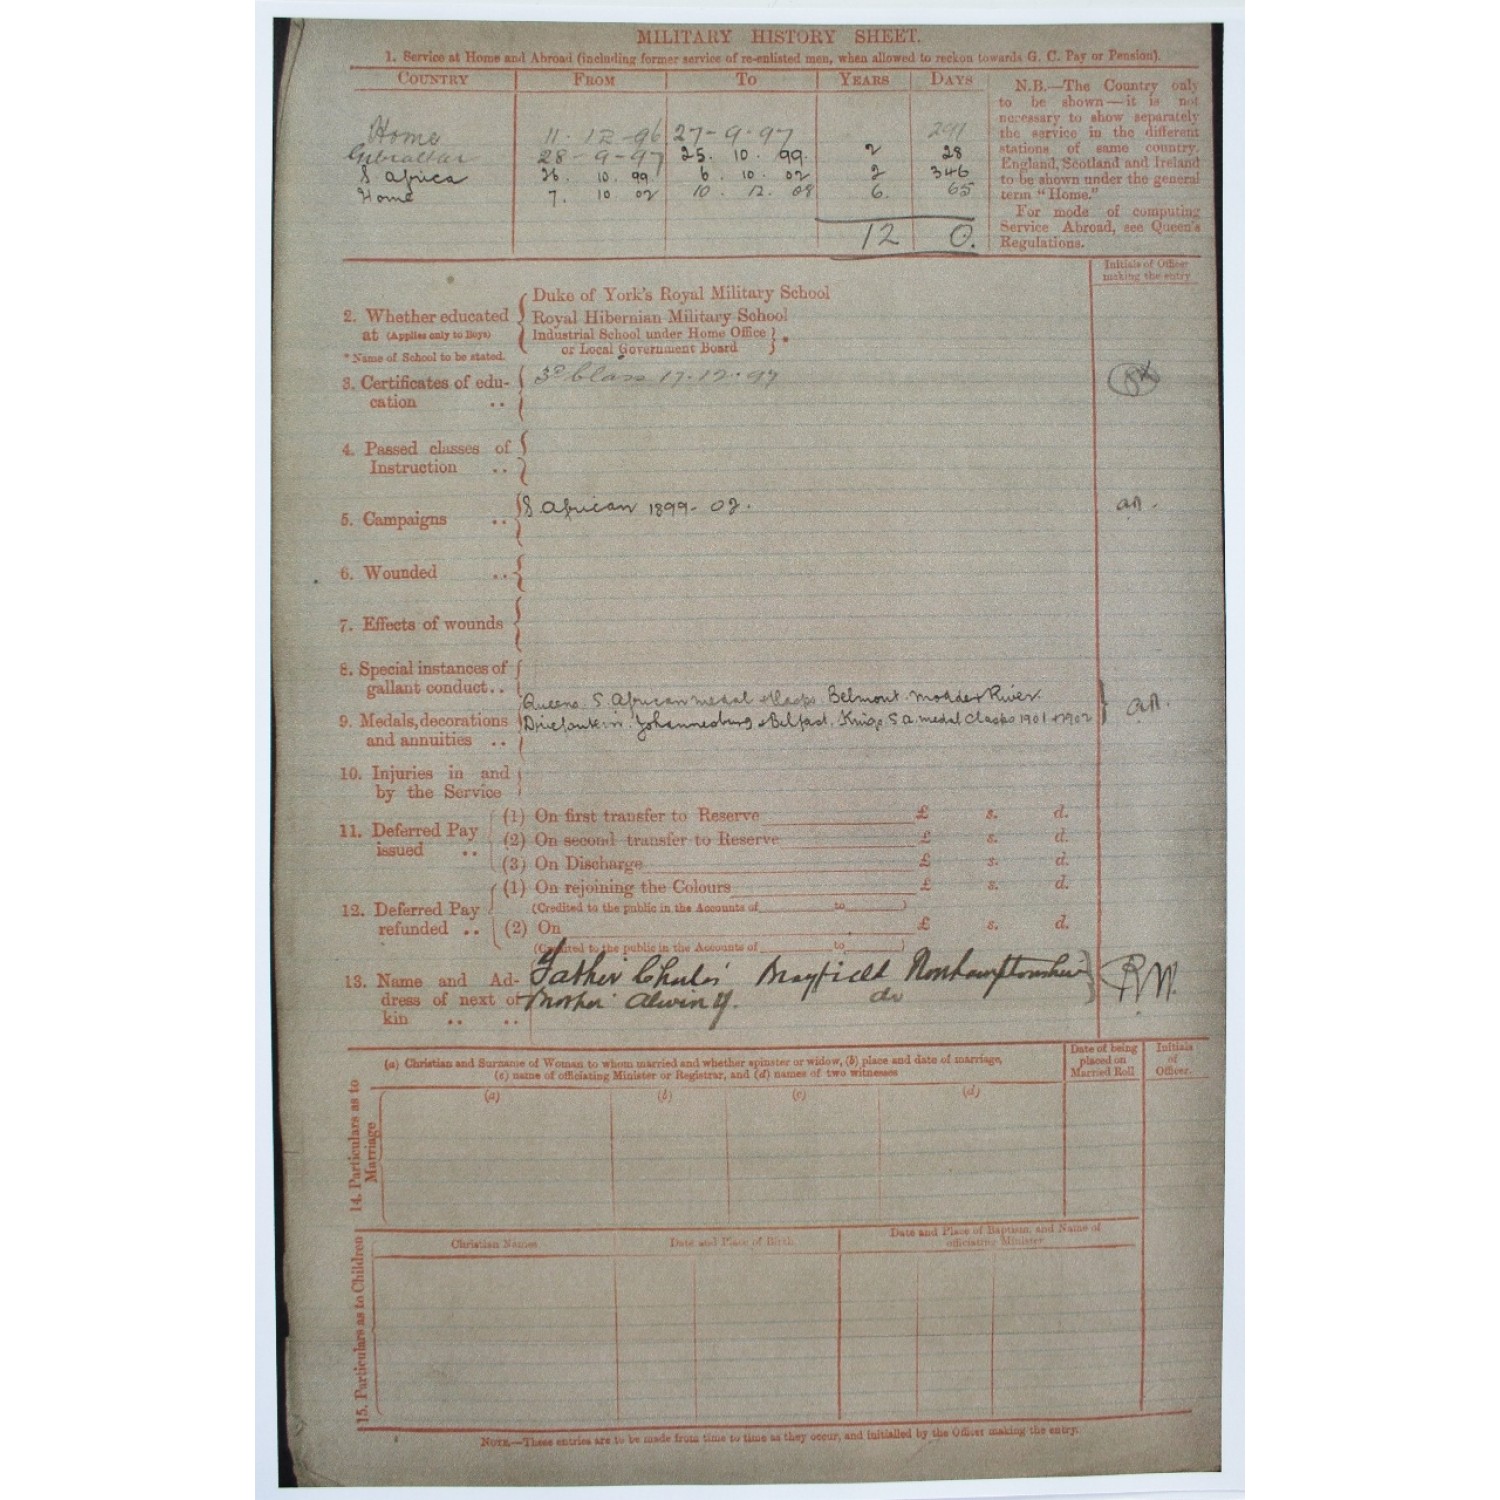 MILITARY HISTORY SHEET.
1. Service at Home and Abroad (including former service of re-enlisted men, when allowed to reckon towards G. C. Pay or Pension).
COUNTRY FROM TO YEARS DAYS
Home 11 - 12 - 96 27 - 9 - 97 291
Gibraltar 28 - 9 - 97 25. 10. 99. 2 28
S Africa 26. 10. 99 6. 10. 02 2 346
Home 7. 10 02 10. 12. 08 6. 65
12 0.
N.B.—The Country only
to be shown—it is not
necessary to show separately
the service in the different
stations of same country.
England, Scotland and Ireland
to be shown under the general
term "Home."
For mode of computing
Service Abroad, see Queen's
Regulations.
Initials of Officer
making the entry
2. Whether educated
at (Applies only to Boys)
* Name of School to be stated.
Duke of York's Royal Military School
Royal Hibernian Military School
Industrial School under Home Office
or Local Government Board *
3. Certificates of edu-
cation ..
3rd Class 17.12.97
4. Passed classes of
Instruction ..
5. Campaigns ..
S African 1899 - 02.
6. Wounded ..
7. Effects of wounds
8. Special instances of
gallant conduct..
9. Medals, decorations
and annuities ..
Queens S. African medal Clasps Belmont. Modder River.
Driefontein. Johannesburg & Belfast. Kings S A medal Clasps 1901 & 1902
10. Injuries in and
by the Service
11. Deferred Pay
issued ..
(1) On first transfer to Reserve £ s. d.
(2) On second transfer to Reserve £ s. d.
(3) On Discharge £ s. d.
12. Deferred Pay
refunded ..
(1) On rejoining the Colours £ s. d.
(Credited to the public in the Accounts of to )
(2) On £ s. d.
(Credited to the public in the Accounts of to )
13. Name and Ad-
dress of next of
kin .. ..
Father Charles Mayfield Northamptonshire
Mother do
14. Particulars as to
Marriage
(a) Christian and Surname of Woman to whom married and whether spinster or widow, (b) place and date of marriage,
(c) name of officiating Minister or Registrar, and (d) names of two witnesses
Date of being
placed on
Married Roll
Initials
of
Officer.
(a) (b) (c) (d)
15. Particulars as to Children
Christian Names
Date and Place of Birth
Date and Place of Baptism, and Name of
officiating Minister
NOTE.—These entries are to be made from time to time as they occur, and initialled by the Officer making the entry.